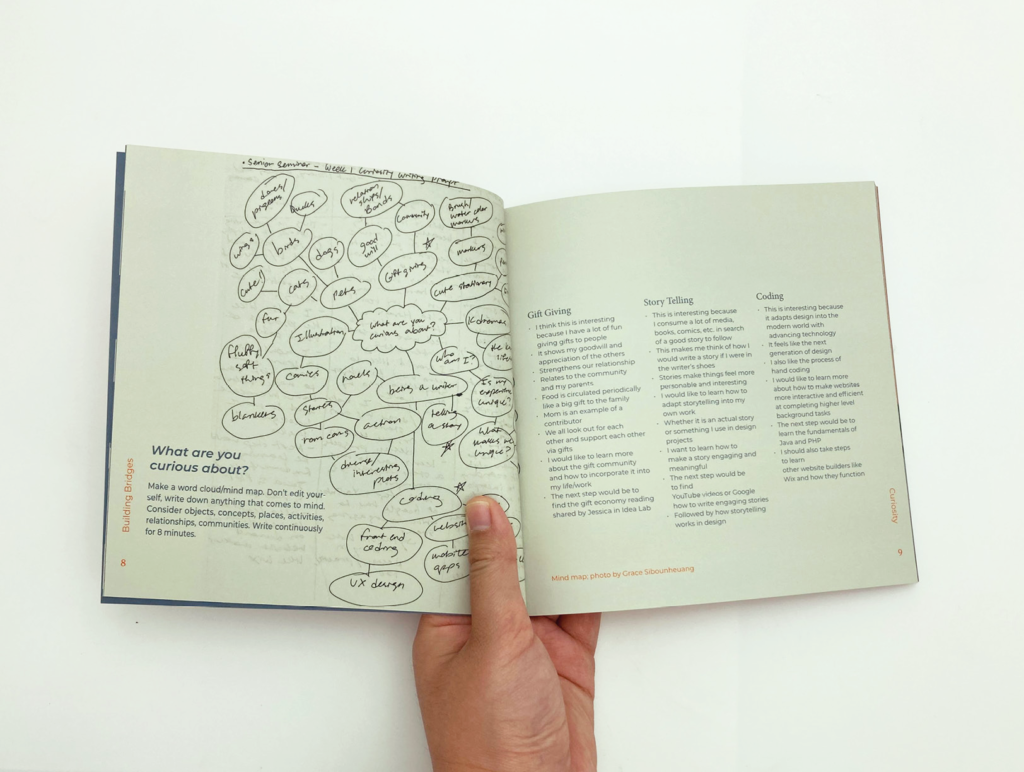 • Senior Seminar – Week 1 Curiosity Writing Prompt
doves/
pigeons
ducks
relation
ships/
Bonds
Community
Brush/
water color
markers
wings
birds
dogs
good
will
Gift giving
markers
cute!
cats
pets
cute stationary
fur
Illustration
What are you
curious about?
K-dramas
fluffy/
soft
things
comics
novels
who
am I?
being a writer
Is my
unique?
blankets
stories
action
telling
a story
What
makes me
unique?
rom coms
diverse/
interesting
plots
coding
front end
coding
website
mobile
apps
UX design
What are you
curious about?
Make a word cloud/mind map. Don't edit your-
self, write down anything that comes to mind.
Consider objects, concepts, places, activities,
relationships, communities. Write continuously
for 8 minutes.
Building Bridges
8
Gift Giving
- I think this is interesting
because I have a lot of fun
giving gifts to people
- It shows my goodwill and
appreciation of the others
- Strengthens our relationship
- Relates to the community
and my parents
- Food is circulated periodically
like a big gift to the family
- Mom is an example of a
contributor
- We all look out for each
other and support each other
via gifts
- I would like to learn more
about the gift community
and how to incorporate it into
my life/work
- The next step would be to
find the gift economy reading
shared by Jessica in Idea Lab
Story Telling
- This is interesting because
I consume a lot of media,
books, comics, etc. in search
of a good story to follow
- This makes me think of how I
would write a story if I were in
the writer's shoes
- Stories make things feel more
personable and interesting
- I would like to learn how to
adapt storytelling into my
own work
- Whether it is an actual story
or something I use in design
projects
- I want to learn how to
make a story engaging and
meaningful
- The next step would be
to find
YouTube videos or Google
how to write engaging stories
- Followed by how storytelling
works in design
Coding
- This is interesting because
it adapts design into the
modern world with
advancing technology
- It feels like the next
generation of design
- I also like the process of
hand coding
- I would like to learn more
about how to make websites
more interactive and efficient
at completing higher level
background tasks
- The next step would be to
learn the fundamentals of
Java and PHP
- I should also take steps
to learn
other website builders like
Wix and how they function
Mind map, photo by Grace Sibounheuang
Curiosity
9